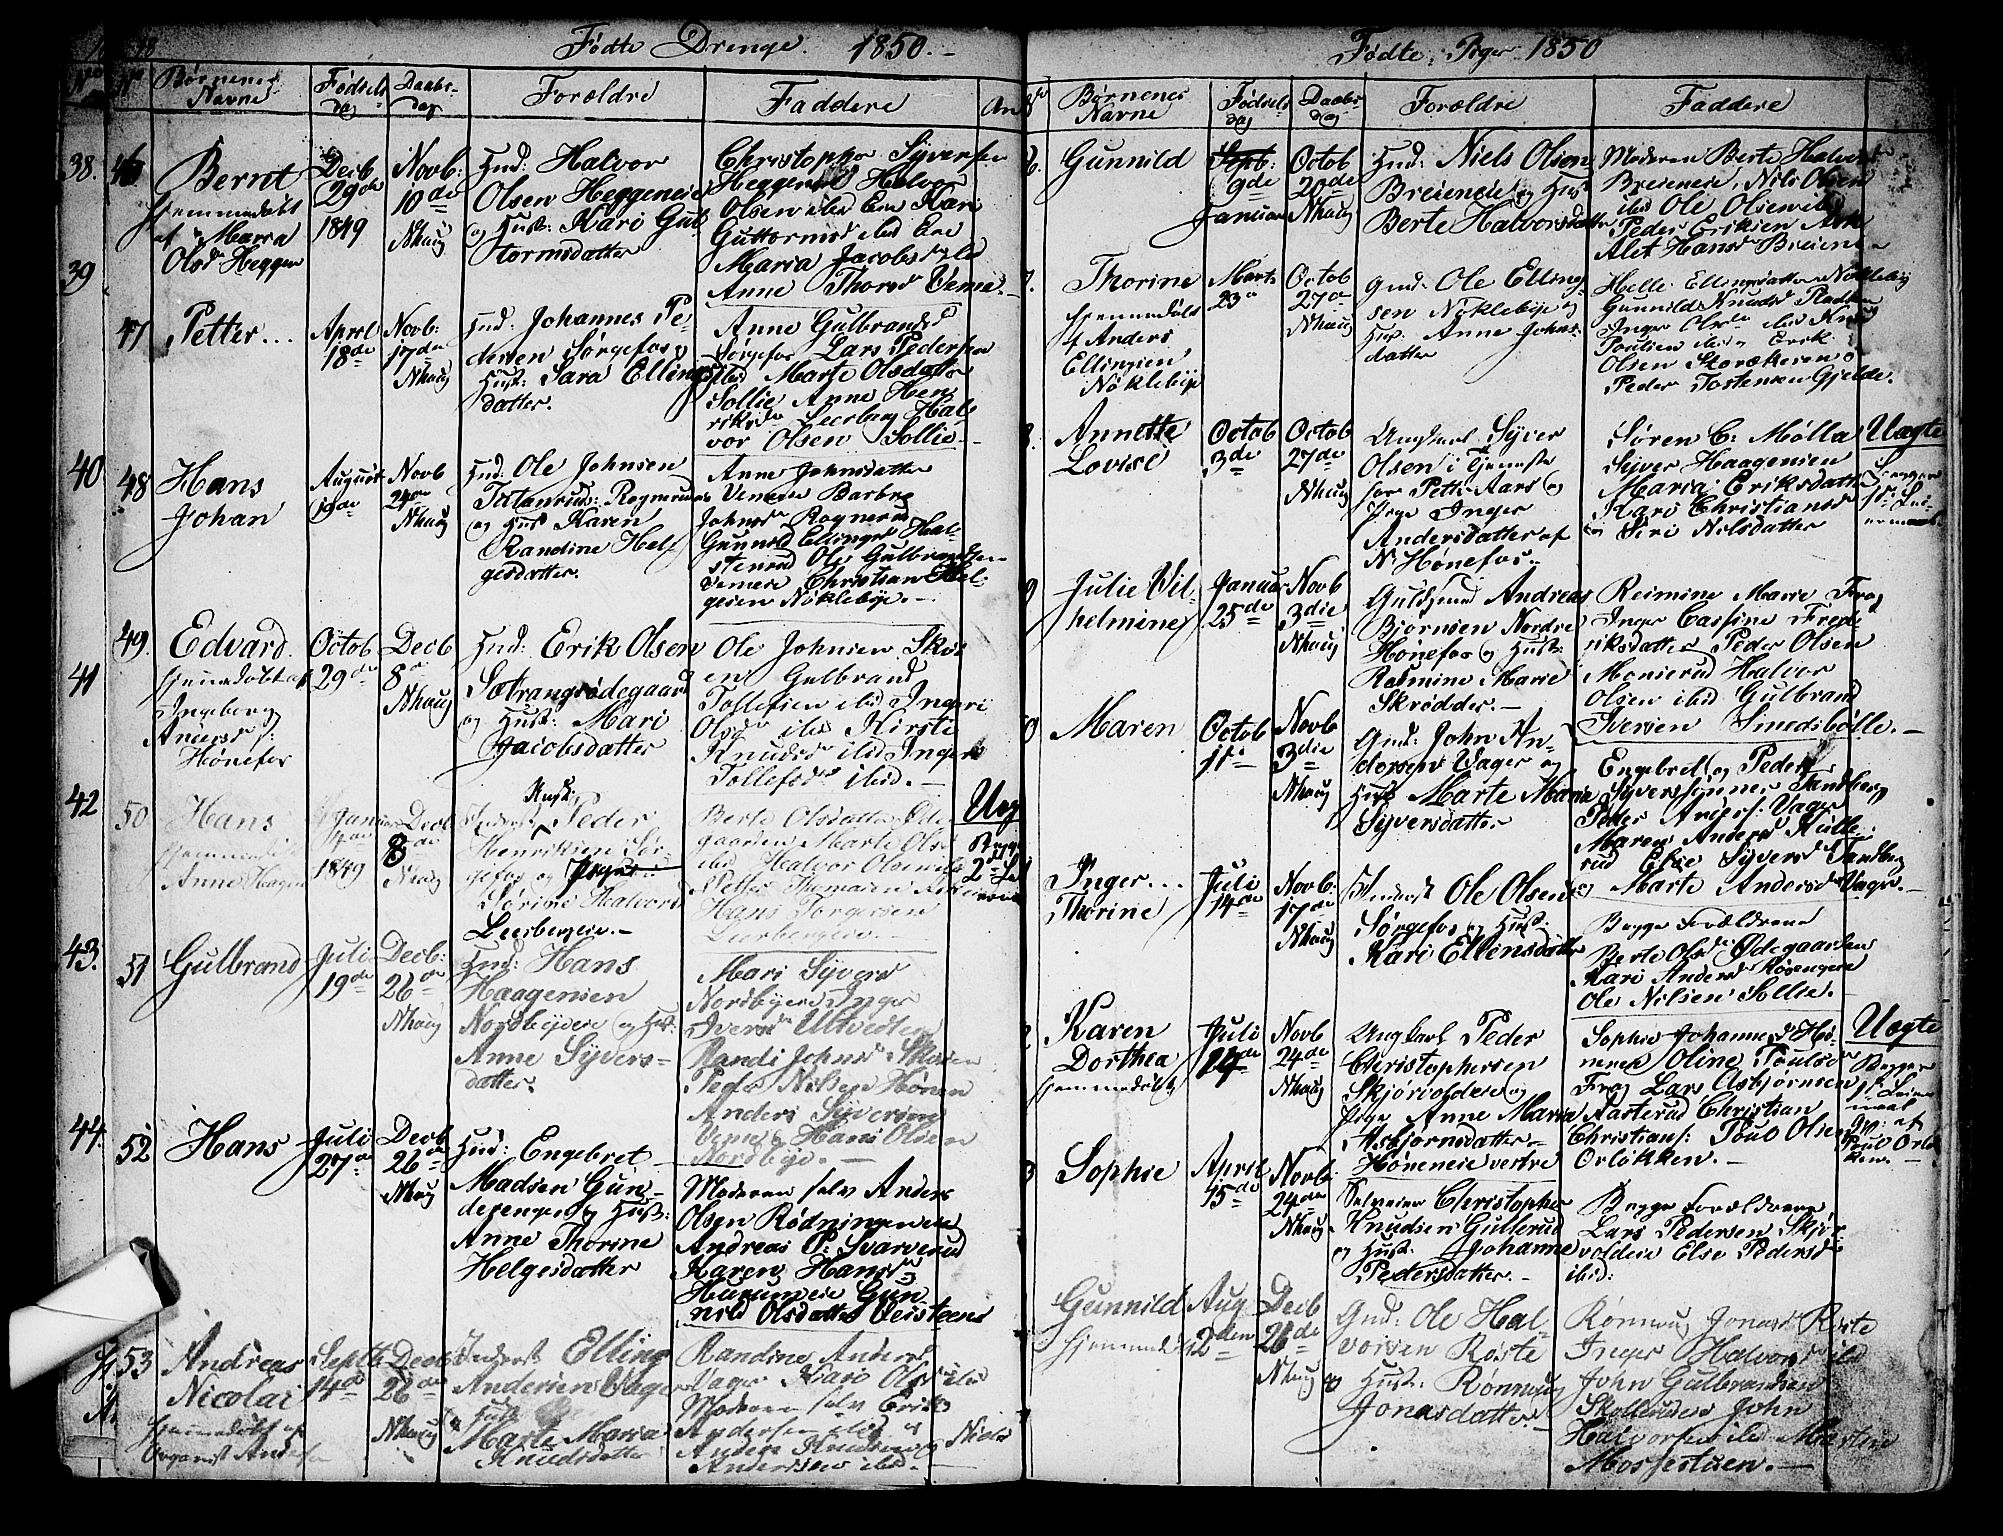 Fødte Drenge. 1850.-
No
Børnenes Navne
Fødsels dag
Daabs dag
Forældre
Faddere
An
38.
Bernt
hjemmedøbt
af Maria
Olsd Heggen
Decb
29de
1849
Novb:
10de
Nhaug
Gmd: Halvor
Olsen Heggeneie
og Hust: Kari Gut
tormsdatter
Christopher Syversen
Heggeneie Halvor
Olsen ibid Ene Kari
Guttormsd ibid Ene
Maria Jacobsd ibid
Anne Thorsd Veme.-
39
47
Petter...
April
18de
Novb:
17de
Nhaug
Gmd: Johannes Pe-
dersen Sørgefos og
Hust: Sara Ellings
datter.
Anne Gulbrandsd
Sørgefos Lars Pedersen
ibid Marte Olsdatter
Sollie Anne Hen
riksd Leerberg Hal
vor Olsen Sollie-
40
48
Hans
Johan
August
19de
Novb
24de
Nhaug
Gmd: Ole Johnsen
og Hust Karen
Randine Hel
gesdatter.
Anne Johnsdatter
Vemeie Barbro
Johnsd Rognerud
Gunnild Ellingsd Hal-
stenrud Ole Gulbrandsen
Vemeie Christian Hel-
gesen Nøklebye.-
41
49.
Edvard.
hjemmedøbt af
Ingeborg
Andersd:
Hønefos
Octob
29de
Decb
8de
Nhaug
Gmd: Erik Olsen
Sætrangsødegaard
og Hust: Mari
Jacobsdatter
Ole Johnsen Skol
en Gulbrand
Tollefsen ibid Ingeri
Olsd ibid Kirsti
Knudsd ibid Inger
Tollefsd ibid.-
42
50
Hans
hjemmedøbt
Anne Haagens
Januar
1849
Decb
8de
Nhaug
Peder
Henriksen Sør-
gefos og Pige:
Sørine Halvord
Leerbergeie.-
Berte Olsdatter Øde
gaarden Marte Olsd
ibid Halvor Olsen ibid
Petter Thomasen
Hans Torgersen
Leerbergeie.-
Uæg
Begges
2det Lei
43.
51
Gulbrand
Juli
19de
Decb:
26de
Nhaug
Gmd: Hans
Haagensen
Nordbyeeie og Hust:
Anne Syvers-
datter.
Mari Syversd
Nordbyeie Inger
Iversd Ultvedten
Randi Johnsd Skolen
Peder Nilsen Hønen
Anders Syversen
Veme Hans Olsen
Nordbye.-
44.
52
Hans
Juli
27de
Decb
26de
Nhaug
Gmd: Engebret
Madsen Gun-
derengen og Hust:
Anne Thorine
Helgesdatter
Moderen selv Anders
Olsen Rødningeneie
Andreas P: Svarverud
Karen Hansd
Hurumeie Gun
nild Olsdatter Veisteen
53
Andreas
Nicolai
hjemmedøbt af
Organist Anders
Septb
14de
Decb
26de
Nhaug
Inderst Elling
Andersen Vager
og Hust
Marte Maria
Knudsdatter
Randine Andersd
Vager Kari Olsd ibid
Moderen selv Erik
Andersen ibid og
Anders Knudsen og Niels
Andersen ibid.-
Fødte Piger 1850
Børnenes Navne
Fødsels dag
Daabs dag
Forældre
Faddere
Gunnild
9de
Januar
Octob
20de
Nhaug
Gmd: Niels Olsen
Breieneie og Hust
Berte Halvorsdatter
Moderen Berte Halvorsd
Breieneie, Nils Olsen
ibid Ole Olsen ibid
Peder Eriksen Ask
Alet Hansd Breiene-
Thorine
hjemmedøbt
af Anders
Ellingsen
Nøklebye
Marts
23de
Octob
27de
Nhaug
Gmd: Ole Elling
sen Nøklebye og
Hust. Anne Johns
datter
Helle Ellingsdatter Nøklebye
Gunnild Knudsd
Inger Olsd ibid Knud
Poulsen ibid Erik
Olsen Storækeren og
Peder Tostensen Gjelde.
Annette
Lovise
Octob
3die
Octob
27de
Nhaug
Ungkarl Syver
Olsen i Tjeneste
hos Peth: Aars og
Pige Inger
Andersdatter af
N: Hønefos.
Søren C: Mølla
Syver Haagensen
Maria Eriksdatter
Kari Christiansd
og Siri Nilsdatter
Uægte
Begges
1ste Lei
ermaal
Julie Vil-
helmine
Januar
25de
Novb
3die
Nhaug
Guldsmed Andreas
Bjørnsen Nordre
Hønefos og Hust:
Reimine Marie
Skrødder.-
Reimine Marie Frog
Inger Cassine Fred-
riksdatter Peder Olsen
Monserud Halvor
Olsen ibid Gulbrand
Iversen Smedsbølle.-
Maren
Octob
1ste
Novb
3die
Nhaug
Gmd: John An-
dersen Vager og
Hust Marte Maria
Syversdatter
Engebret og Peder
Syverssønner Tandberg
Petter Andersf: Vager
Maren Andersd Hulle-
rud Else Syversd Tandberg
og Marte Andersd Vager.-
Inger...
Thorine
Juli
14de
Novb:
17de
Nhaug
Inderst Ole Olsen
Sørgefos og Hust
Kari Ellensdatter
Begge Forældrene
Berte Olsd Ødegaarden
Kari Andersd Hønengeie
Ole Nilsen Sollie.
Karen
Dorthea
hjemmedøbt
Juli
24de
Novb
24de
Nhaug
Ungkarl Peder
Christophersen
Skjørvoldeie og
Pige Anne Maria
Asbjørnsdatter-
Høneneie vestre
Sophie Johannesd Hø-
neneie Oline Poulsd
Frog Lars Asbjørnsen
Aasterud Christian
Christiansf: Poul Olsen
Orløkken.-
Uægte
Begges
1ste Leier
maal
Poul Orløk
ken.
Sophie
April
15de
Novb:
24de
Nhaug
Selveier Christopher
Knudsen Gullerud
og Hust Johanne
Pedersdatter.-
Begge Forældrene
Lars Pedersen Skjør-
voldeie Else Pedersd
ibid:
Gunnild
hjemmedøbt
Aug
2den
Decb
26de
Nhaug
Gmd: Ole Hal-
vorsen Røste
og Hust: Rønnaug
Jonasdatter
Rønnaug Jonasd Røste
Inger Halvorsd ibid
John Gulbrandsen
Skollerudeie John
Halvorsen ibid Marten
Mossestuen.-